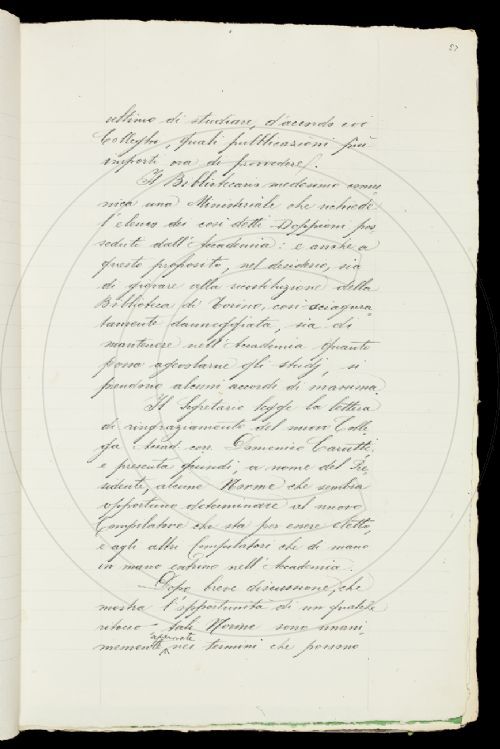 57
ultimo di studiare, d'accordo coi
Colleghi, quali pubblicazioni più
importi ora di provvedere.
Il Bibliotecario medesimo comu-
nica una Ministeriale che richiede
l'elenco dei così detti Doppioni pos
seduti dall'Accademia: e anche a
questo proposito, nel desiderio, sia
di giovare alla ricostituzione della
Biblioteca di Torino, così sciagura-
tamente danneggiata, sia di
mantenere nell'Accademia quanto
possa agevolarne gli studj, si
prendono alcuni accordi di massima.
Il Segretario legge la lettera
di ringraziamento del nuovo Colle
ga Accad. corr. Domenico Carutti,
e presenta quindi, a nome del Pre
sidente, alcune Norme che sembra
opportuno determinare al nuovo
Compilatore che sta per essere eletto,
e agli altri Compilatori che di mano
in mano entrino nell'Accademia.
Dopo breve discussione, che
mostra l'opportunità di un qualche
ritocco - tali Norme sono unani-
memente approvate nei termini che possono